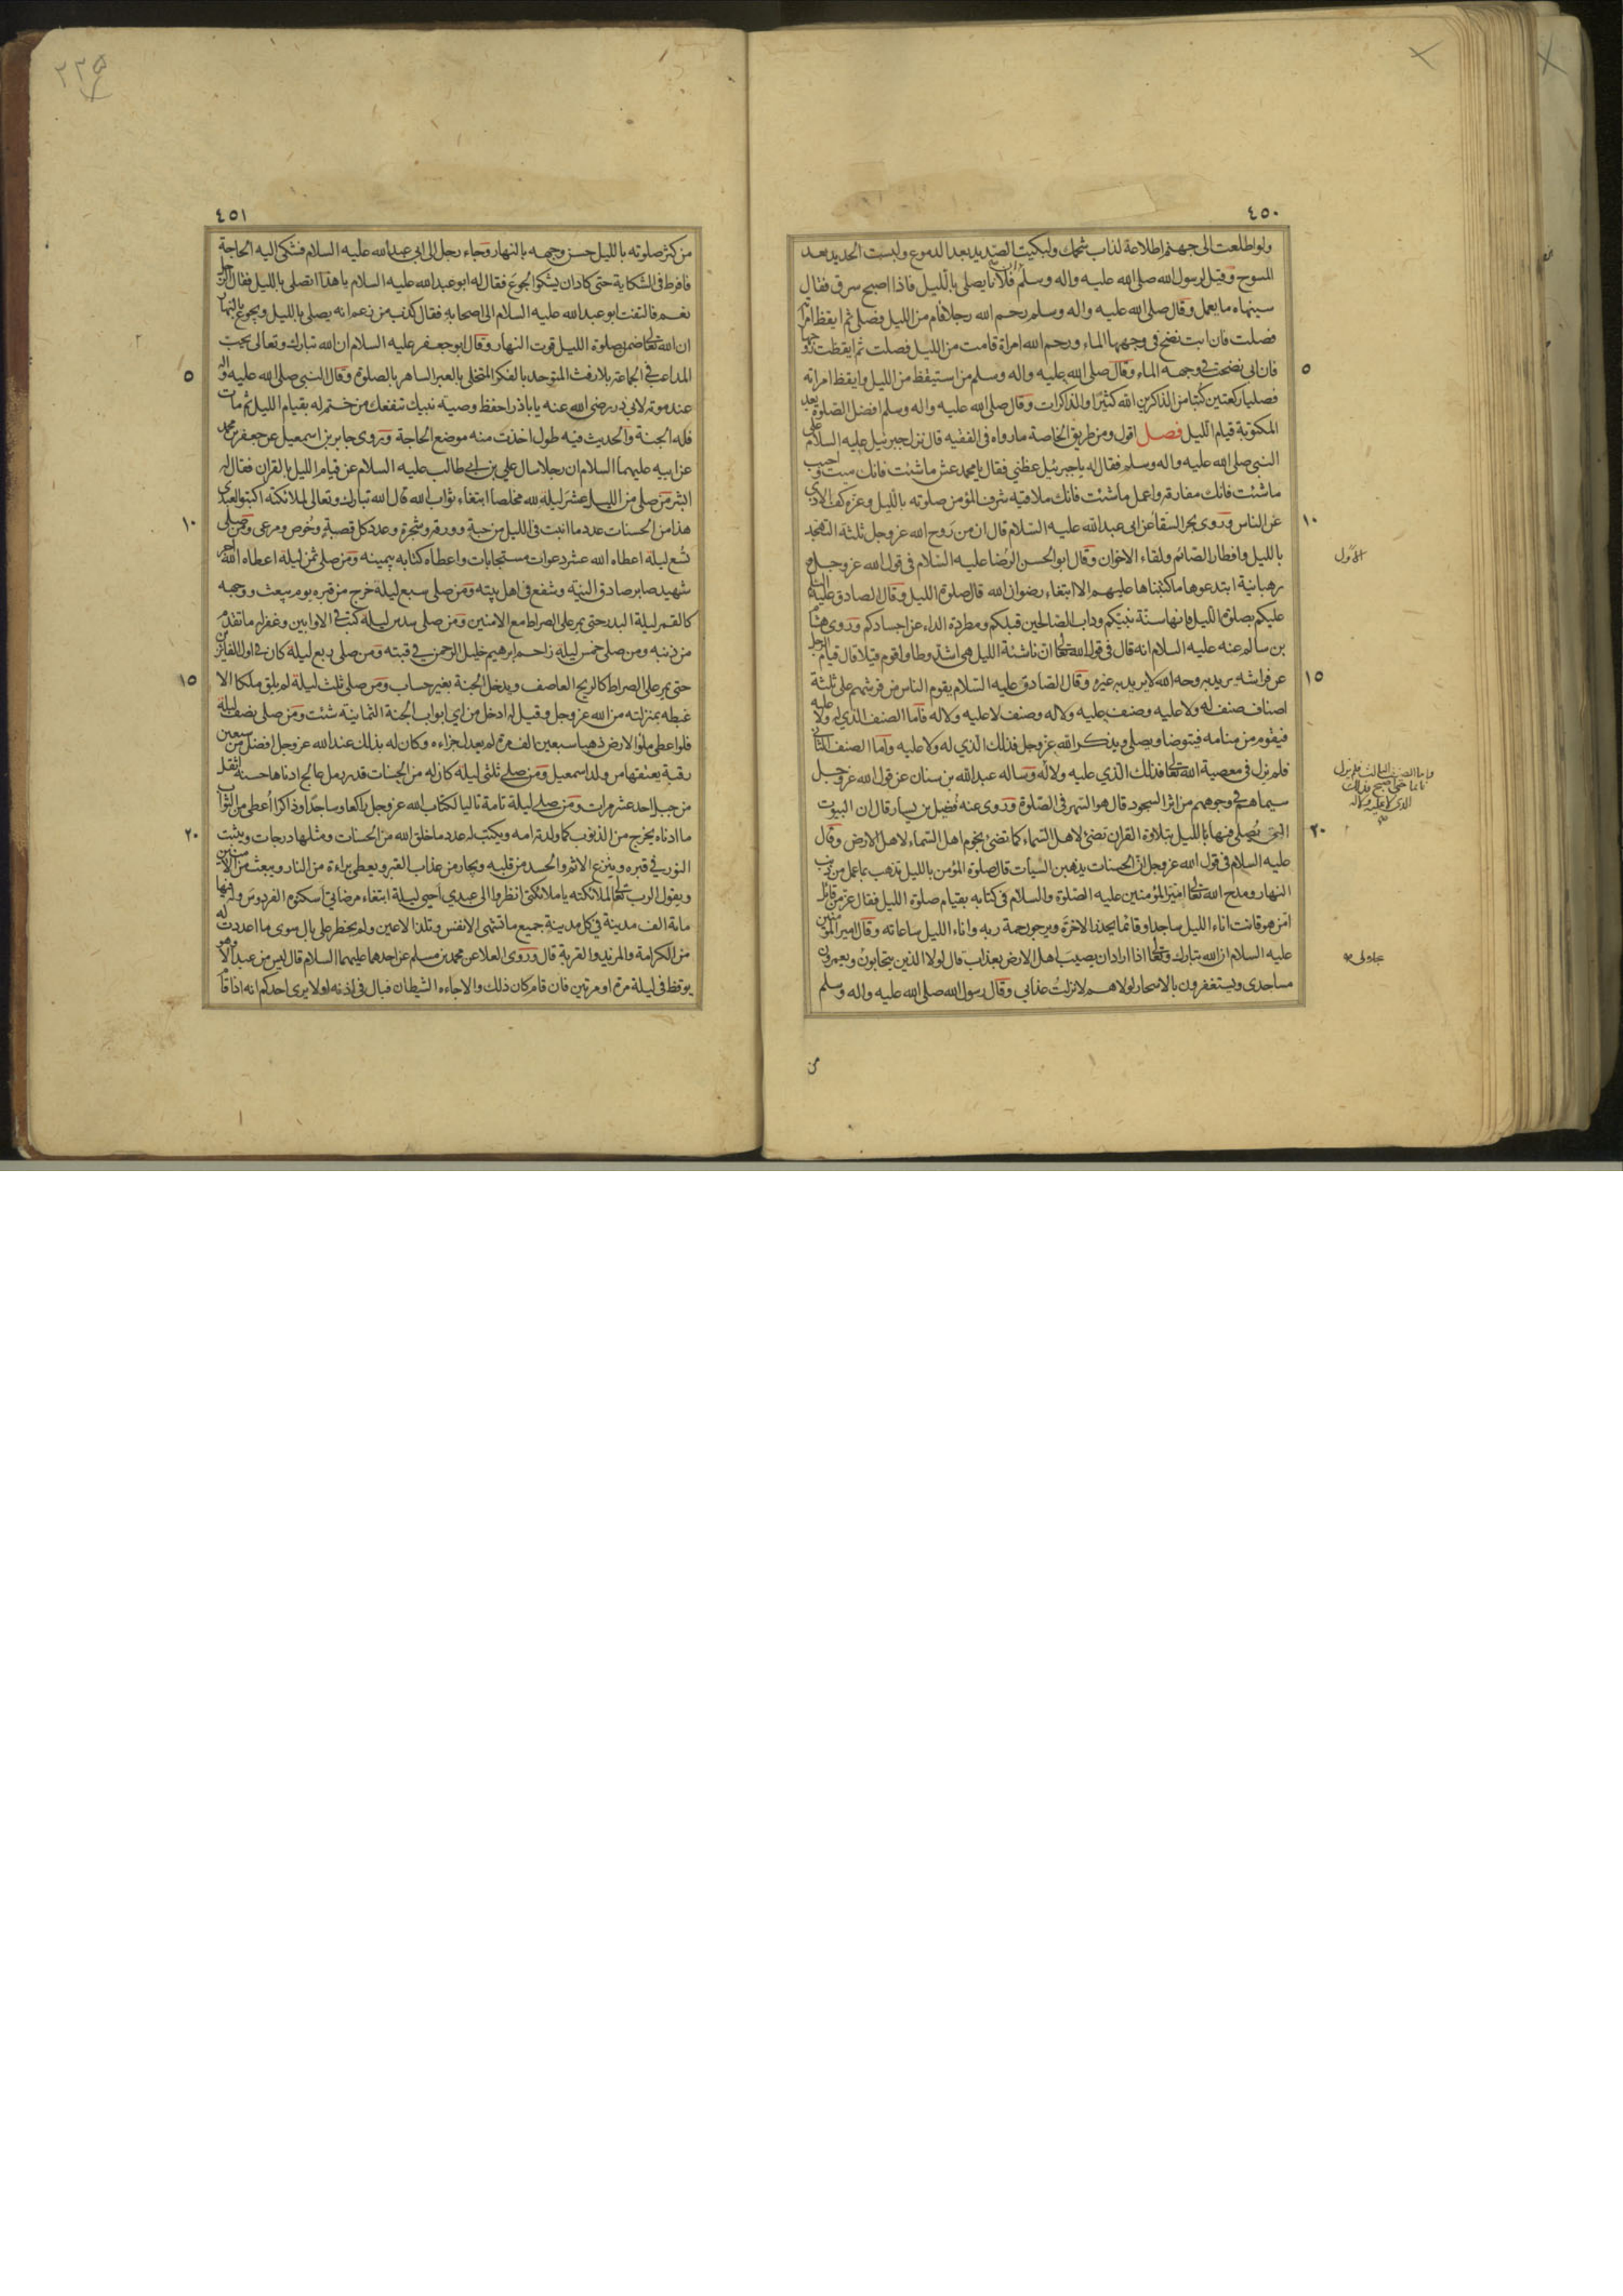 ٤٥٠
ولو اطلعت الى جهنم اطلاعة لذاب شحمك ولبكيت الصديد بعد الدموع ولبست الحديد بعد
المسوح وقيل لرسول الله صلى الله عليه واله وسلم ان فلانا يصلى بالليل فاذا اصبح سرق فقال
سينهاه ما يعمل وقال صلى الله عليه واله وسلم رحم الله رجلا قام من الليل فصلى ثم ايقظ امراته
فصلت فان ابت نضح فى وجهها الماء ورحم الله امراة قامت من الليل فصلت ثم ايقظت زوجها
فان ابى نضحت فى وجهه الماء وقال صلى الله عليه واله وسلم من استيقظ من الليل وايقظ امراته
٥
فصليا ركعتين كتبا من الذاكرين الله كثيرا والذاكرات وقال صلى الله عليه واله وسلم افضل الصلوة بعد
المكتوبة قيام الليل فصل اقول ومن طريق الخاصة ما رواه فى الفقيه قال نزل جبرئيل عليه السلام على
النبى صلى الله عليه واله وسلم فقال له يا جبرئيل عظنى فقال يا محمد عش ما شئت فانك ميت واحبب
ما شئت فانك مفارقه واعمل ما شئت فانك ملاقيه شرف المؤمن صلوته بالليل وعزه كف الاذى
عن الناس وروى بحر السقا عن ابى عبد الله عليه السلام قال ان من روح الله عز وجل ثلثة التهجد
١٠
بالليل وافطار الصائم ولقاء الاخوان وقال ابو الحسن الرضا عليه السلام فى قول الله عز وجل و
رهبانية ابتدعوها ما كتبناها عليهم الا ابتغاء رضوان الله قال صلوة الليل وقال الصادق عليه السلام
عليكم بصلوة الليل فانها سنة نبيكم وداب الصالحين قبلكم ومطردة الداء عن اجسادكم وروى هشام
بن سالم عنه عليه السلام انه قال فى قول الله تعالى ان ناشئة الليل هى اشد وطا واقوم قيلا قال قيام الرجل
عن فراشه يريد به وجه الله لا يريد به غيره وقال الصادق عليه السلام يقوم الناس من فرشهم على ثلثة
١٥
اصناف صنف له ولا عليه وصنف عليه ولا له وصنف لا عليه ولا له فاما الصنف الذي له ولا عليه
فيقوم من منامه فيتوضا ويصلى ويذكر الله عز وجل فذلك الذي له ولا عليه واما الصنف الثانى
فلم يزل فى معصية الله تعالى فذلك الذي عليه ولا له وساله عبد الله بن سنان عن قول الله عز وجل
سيماهم فى وجوههم من اثر السجود قال هو السهر فى الصلوة وروى عنه فضيل بن يسار قال ان البيوت
التى يصلى فيها بالليل بتلاوة القران تضئ لاهل السماء كما تضئ نجوم السماء لاهل الارض وقال
٢٠
عليه السلام فى قول الله عز وجل ان الحسنات يذهبن السيات قال صلوة المؤمن بالليل تذهب بما عمل من ذنب
النهار ومدح الله تعالى امير المؤمنين عليه الصلوة والسلام فى كتابه بقيام صلوة الليل فقال عز من قائل
امن هو قانت اناء الليل ساجدا وقائما يحذر الاخرة ويرجو رحمة ربه واناء الليل ساعاته وقال امير المؤمنين
عليه السلام ان الله تبارك وتعالى اذا اراد ان يصيب اهل الارض بعذاب قال لولا الذين يتحابون ويعمرون
مساجدى ويستغفرون بالاسحار لولاهم لانزلت عذابي وقال رسول الله صلى الله عليه واله وسلم
من
واما الصنف الثالث فلم يزل
نائما حتى اصبح فذلك
الذى لا عليه ولا له
٤٥١
من كثر صلوته بالليل حسن وجهه بالنهار وجاء رجل الى ابى عبد الله عليه السلام فشكى اليه الحاجة
فافرط فى الشكاية حتى كاد ان يشكوا الجوع فقال له ابو عبد الله عليه السلام يا هذا اتصلى بالليل فقال الرجل
نعم فالتفت ابو عبد الله عليه السلام الى اصحابه فقال كذب من زعم انه يصلى بالليل ويجوع بالنهار
ان الله تعالى ضمن بصلوة الليل قوت النهار وقال ابو جعفر عليه السلام ان الله تبارك وتعالى يحب
المداعب فى الجماعة بلا رفث المتوحد بالفكر المتخلى بالعبر الساهر بالصلوة وقال النبى صلى الله عليه واله
٥
عند موته لابى ذر رضى الله عنه يا باذر احفظ وصية نبيك تنفعك من ختم له بقيام الليل ثم مات
فله الجنة والحديث فيه طول اخذت منه موضع الحاجة وروى جابر بن اسمعيل عن جعفر بن محمد
عن ابيه عليهما السلام ان رجلا سال علي بن ابي طالب عليه السلام عن قيام الليل بالقران فقال له
ابشر من صلى من الليل عشر ليلة لله مخلصا ابتغاء ثواب الله قال الله تبارك وتعالى لملائكته اكتبوا لعبدى
هذا من الحسنات عدد ما انبت فى الليل من حبة وورقة وشجرة وعدد كل قصبة وخوص ومرعى ومن صلى
١٠
تسع ليلة اعطاه الله عشر دعوات مستجابات واعطاه كتابه بيمينه ومن صلى ثمن ليلة اعطاه الله اجر
شهيد صابر صادق النية وشفع فى اهل بيته ومن صلى سبع ليلة خرج من قبره يوم يبعث ووجهه
كالقمر ليلة البدر حتى يمر على الصراط مع الامنين ومن صلى سدس ليلة كتب فى الاوابين وغفر له ما تقدم
من ذنبه ومن صلى خمس ليلة زاحم ابرهيم خليل الرحمن فى قبته ومن صلى ربع ليلة كان فى اول الفايزين
حتى يمر على الصراط كالريح العاصف ويدخل الجنة بغير حساب ومن صلى ثلث ليلة لم يلق ملكا الا
١٥
غبطه بمنزلته من الله عز وجل وقيل له ادخل من اي ابواب الجنة الثمانية شئت ومن صلى نصف ليلة
فلو اعطى ملؤ الارض ذهبا سبعين الف مرة لم يعدل جزاءه وكان له بذلك عند الله عز وجل افضل من سبعين
رقبة يعتقها من ولد اسمعيل ومن صلى ثلثى ليلة كان له من الحسنات قدر رمل عالج ادناها حسنة اثقل
من جبل احد عشر مرات ومن صلى ليلة تامة تاليا لكتاب الله عز وجل راكعا وساجدا وذاكرا اعطى من الثواب
ما ادناه يخرج من الذنوب كما ولدته امه ويكتب له عدد ما خلق الله من الحسنات ومثلها درجات ويثبت
٢٠
النور فى قبره وينزع الاثم والحسد من قلبه ويجار من عذاب القبر ويعطى براءة من النار ويبعث من الامنين
ويقول الرب تعالى لملائكته يا ملائكتى انظروا الى عبدي احيى ليلة ابتغاء مرضاتى اسكنوه الفردوس وله فيها
مائة الف مدينة فى كل مدينة جميع ما تشتهى الانفس وتلذ الاعين ولم يخطر على بال سوى ما اعددت له
من الكرامة والمزيد والقربة قال وروى العلا عن محمد بن مسلم عن احدهما عليهما السلام قال ليس من عبد الا وهو
يوقظ فى ليلة مرة او مرتين فان قام كان ذلك والا جاءه الشيطان فبال فى اذنه اولا يرى احدكم انه اذا قام